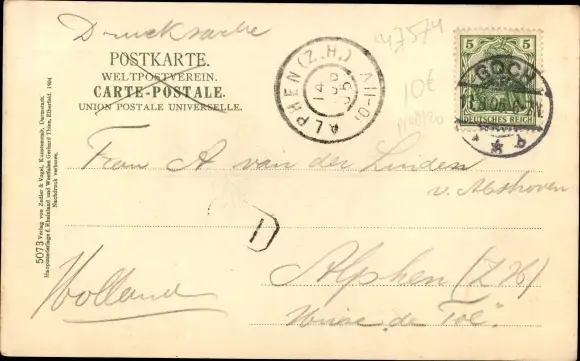 Drucksache
POSTKARTE.
WELTPOSTVEREIN.
CARTE-POSTALE.
UNION POSTALE UNIVERSELLE.
ALPHEN (Z.H.)
5
5
DEUTSCHES REICH
GOCH
b
10€
Frau A van der Linden
Alphen (ZH)
Holland
Huize "de Tol"
5073 Verlag von Zedler & Vogel, Kunstanstalt, Darmstadt.
Hauptniederlage f. Rheinland und Westfalen Gerhard Thien, Elberfeld. 1904
Nachdruck verboten.